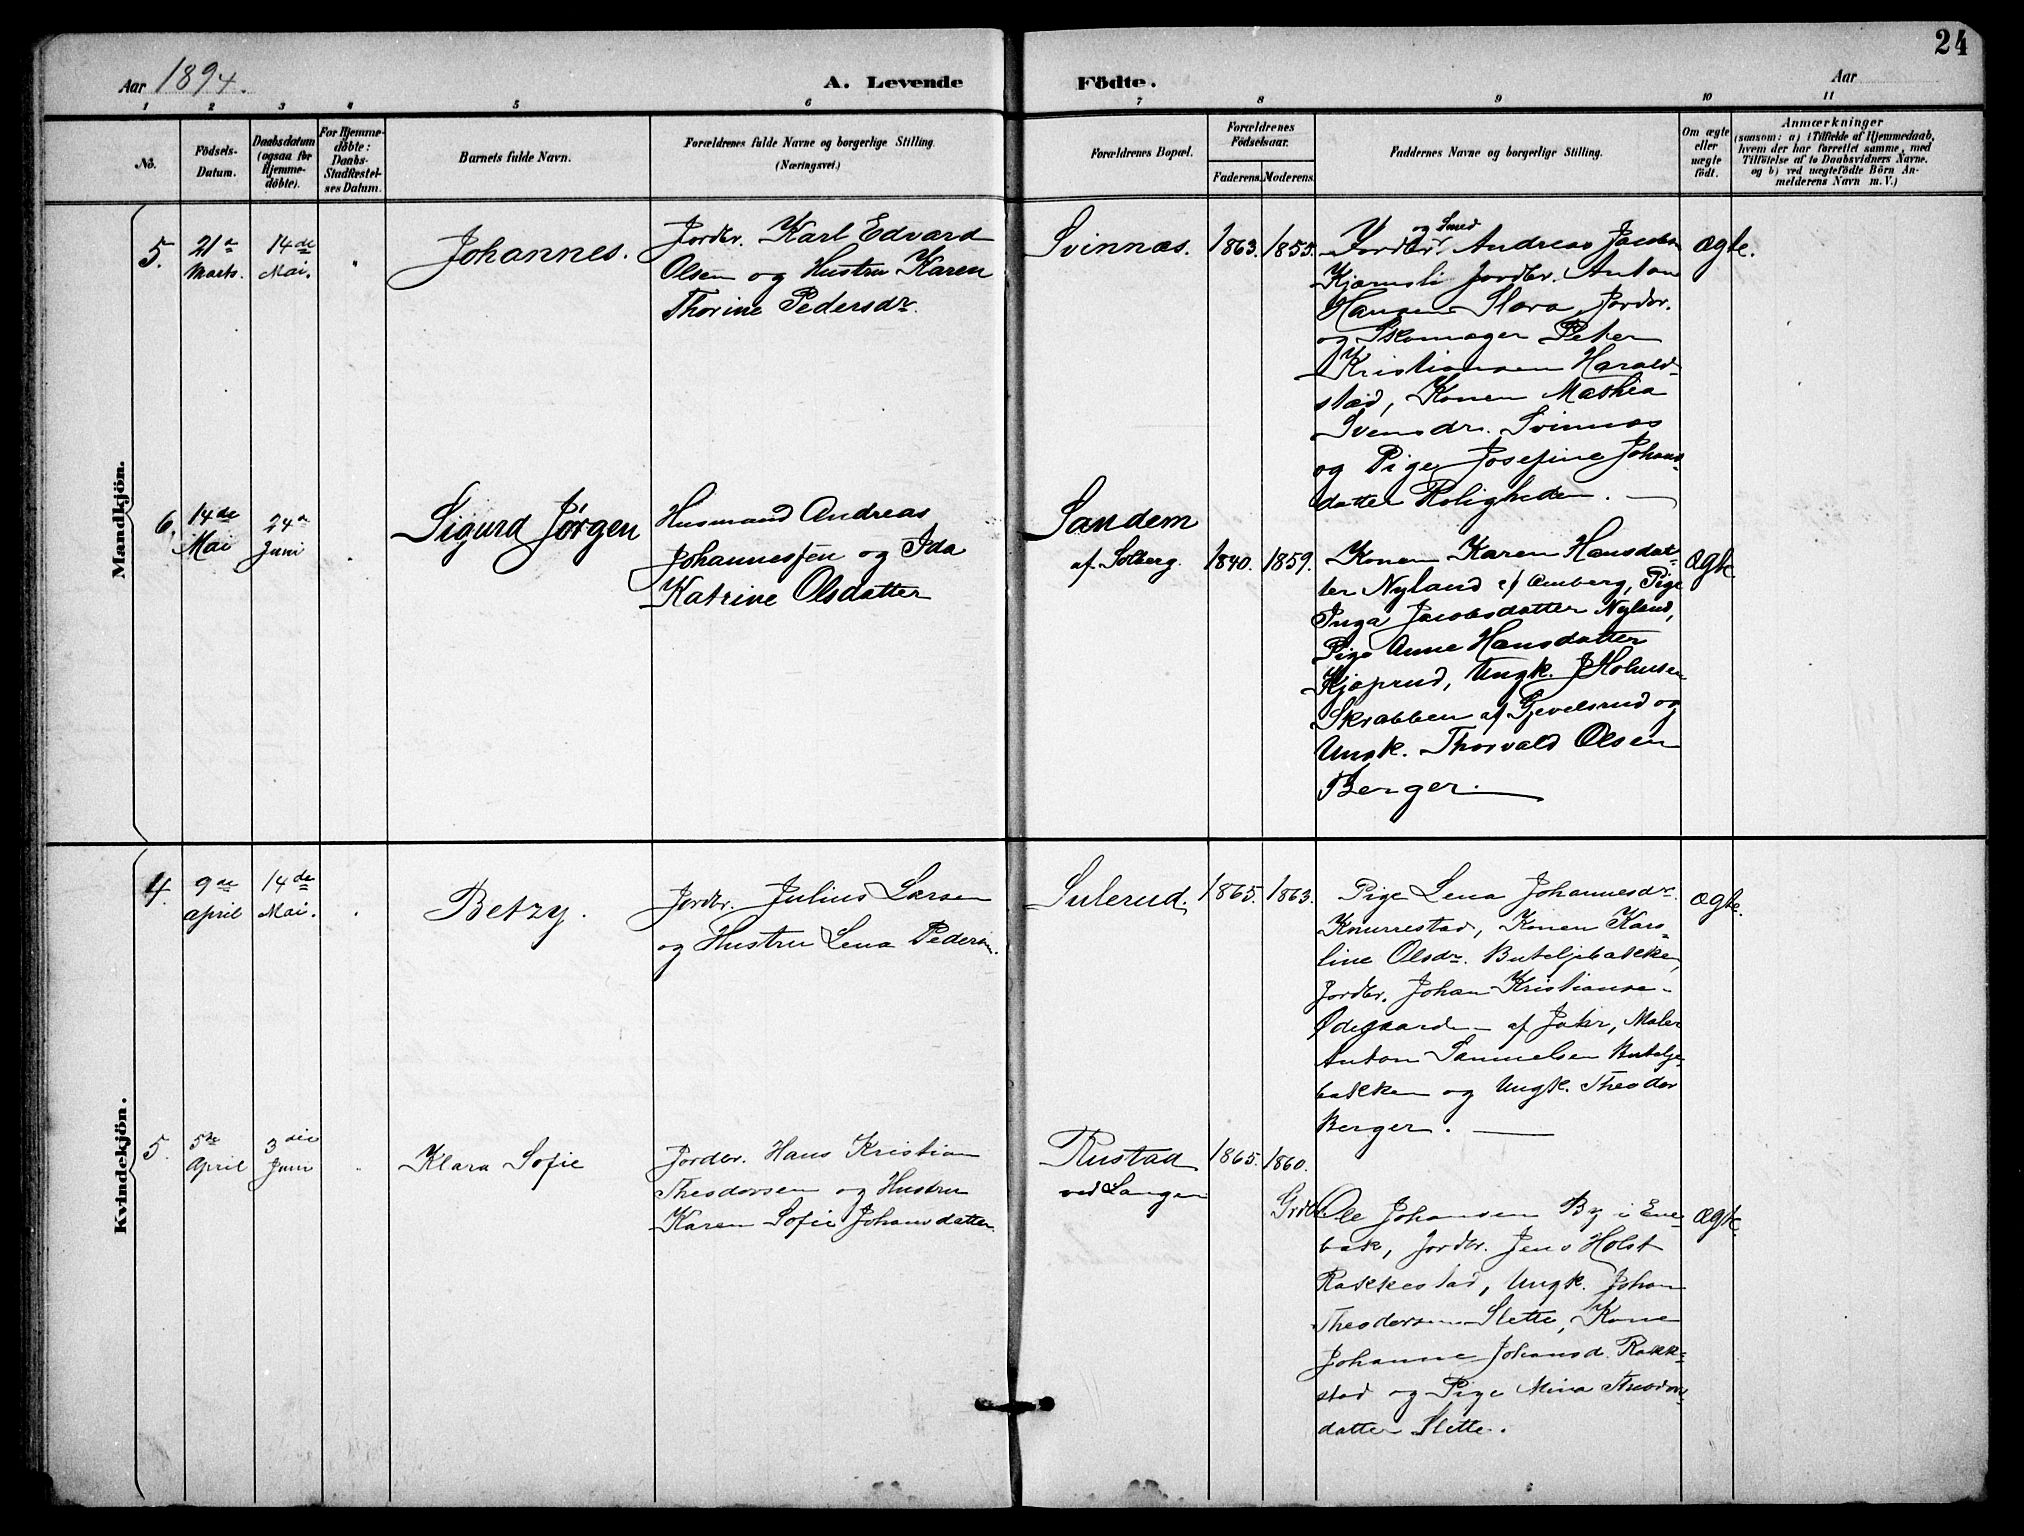 24
Aar 1894.
A. Levende
Födte.
Aar
1 2 3 4 5 6 7 8 9 10 11
No.
Födsels-
Datum.
Daabsdatum
(ogsaa for
Hjemme-
döbte).
For Hjemme-
döbte:
Daabs-
Stadfæstel-
ses Datum.
Barnets fulde Navn.
Forældrenes fulde Navne og borgerlige Stilling.
(Næringsvei.)
Forældrenes Bopæl.
Forældrenes
Födselsaar.
Faderens. Moderens.
Faddernes Navne og borgerlige Stilling.
Om ægte
eller
uægte
födt.
Anmærkninger
(saasom: a) i Tilfælde af Hjemmedaab,
hvem der har forrettet samme, med
Tilföielse af to Daabsvidners Navne.
og b) ved uægtefödte Börn An-
melderens Navn m. V.)
Mandkjön.
5.
21de
Marts.
14de
Mai.
"
Johannes.
Jordbr. Karl Edvard
Olsen og Hustru Karen
Thorine Pedersdr.
Svinnæs.
1863.
1855.
og Smed
Jordbr. Andreas Jacobs.
Kjærnsli Jordbr. Anton
Hansen Slora, Jordbr.
og Skomager Peter
Kristiansen Harald-
stad, Konen Mathea
Svensdr. Svinnæs
og Pige Josefine Johans-
datter Roligheden.
ægte.
6.
14de
Mai
24de
Juni
"
Sigurd Jørgen
Husmand Andreas
Johannessen og Ida
Katrine Olsdatter
Sandem
af Solberg.
1840.
1859.
Konen Karen Hansdat-
ter Nyland af Amberg, Pige
Inga Jacobsdatter Nyland,
Pige Anne Hansdatter
Kjæprud, Ungk. J Holmsen
Skrabben af Gjevelsrud og
Ungk. Thorvald Olsen
Berger.
ægte
Kvindekjön.
4.
9de
april
14de
Mai.
"
Betzy.
Jordbr. Julius Larsen
og Hustru Lena Peders.
Sulerud.
1865.
1863.
Pige Lena Johannesdr.
Knurrestad, Konen Karo-
line Olsdr. Buteljebakken,
Jordbr. Johan Kristianse-
Ødegaarden af Jahr, Maler
Anton Samuelsen Butelje-
bakken og Ungk. Theodor
Berger.
ægte.
5.
5te
April
3die
Juni
"
Klara Sofie
Jordbr. Hans Kristian
Theodorsen og Hustru
Karen Sofie Johansdatter
Rustad
ved Langen
1865.
1860.
Grdbr.
Ole Johansen By i Ene-
bak, Jordbr. Jens Holst
Rakkestad, Ungk. Johan
Theodorsen Slette, Kone
Johanne Johansd. Rakke-
stad og Pige Mina Theodors-
datter Slette.
ægte.